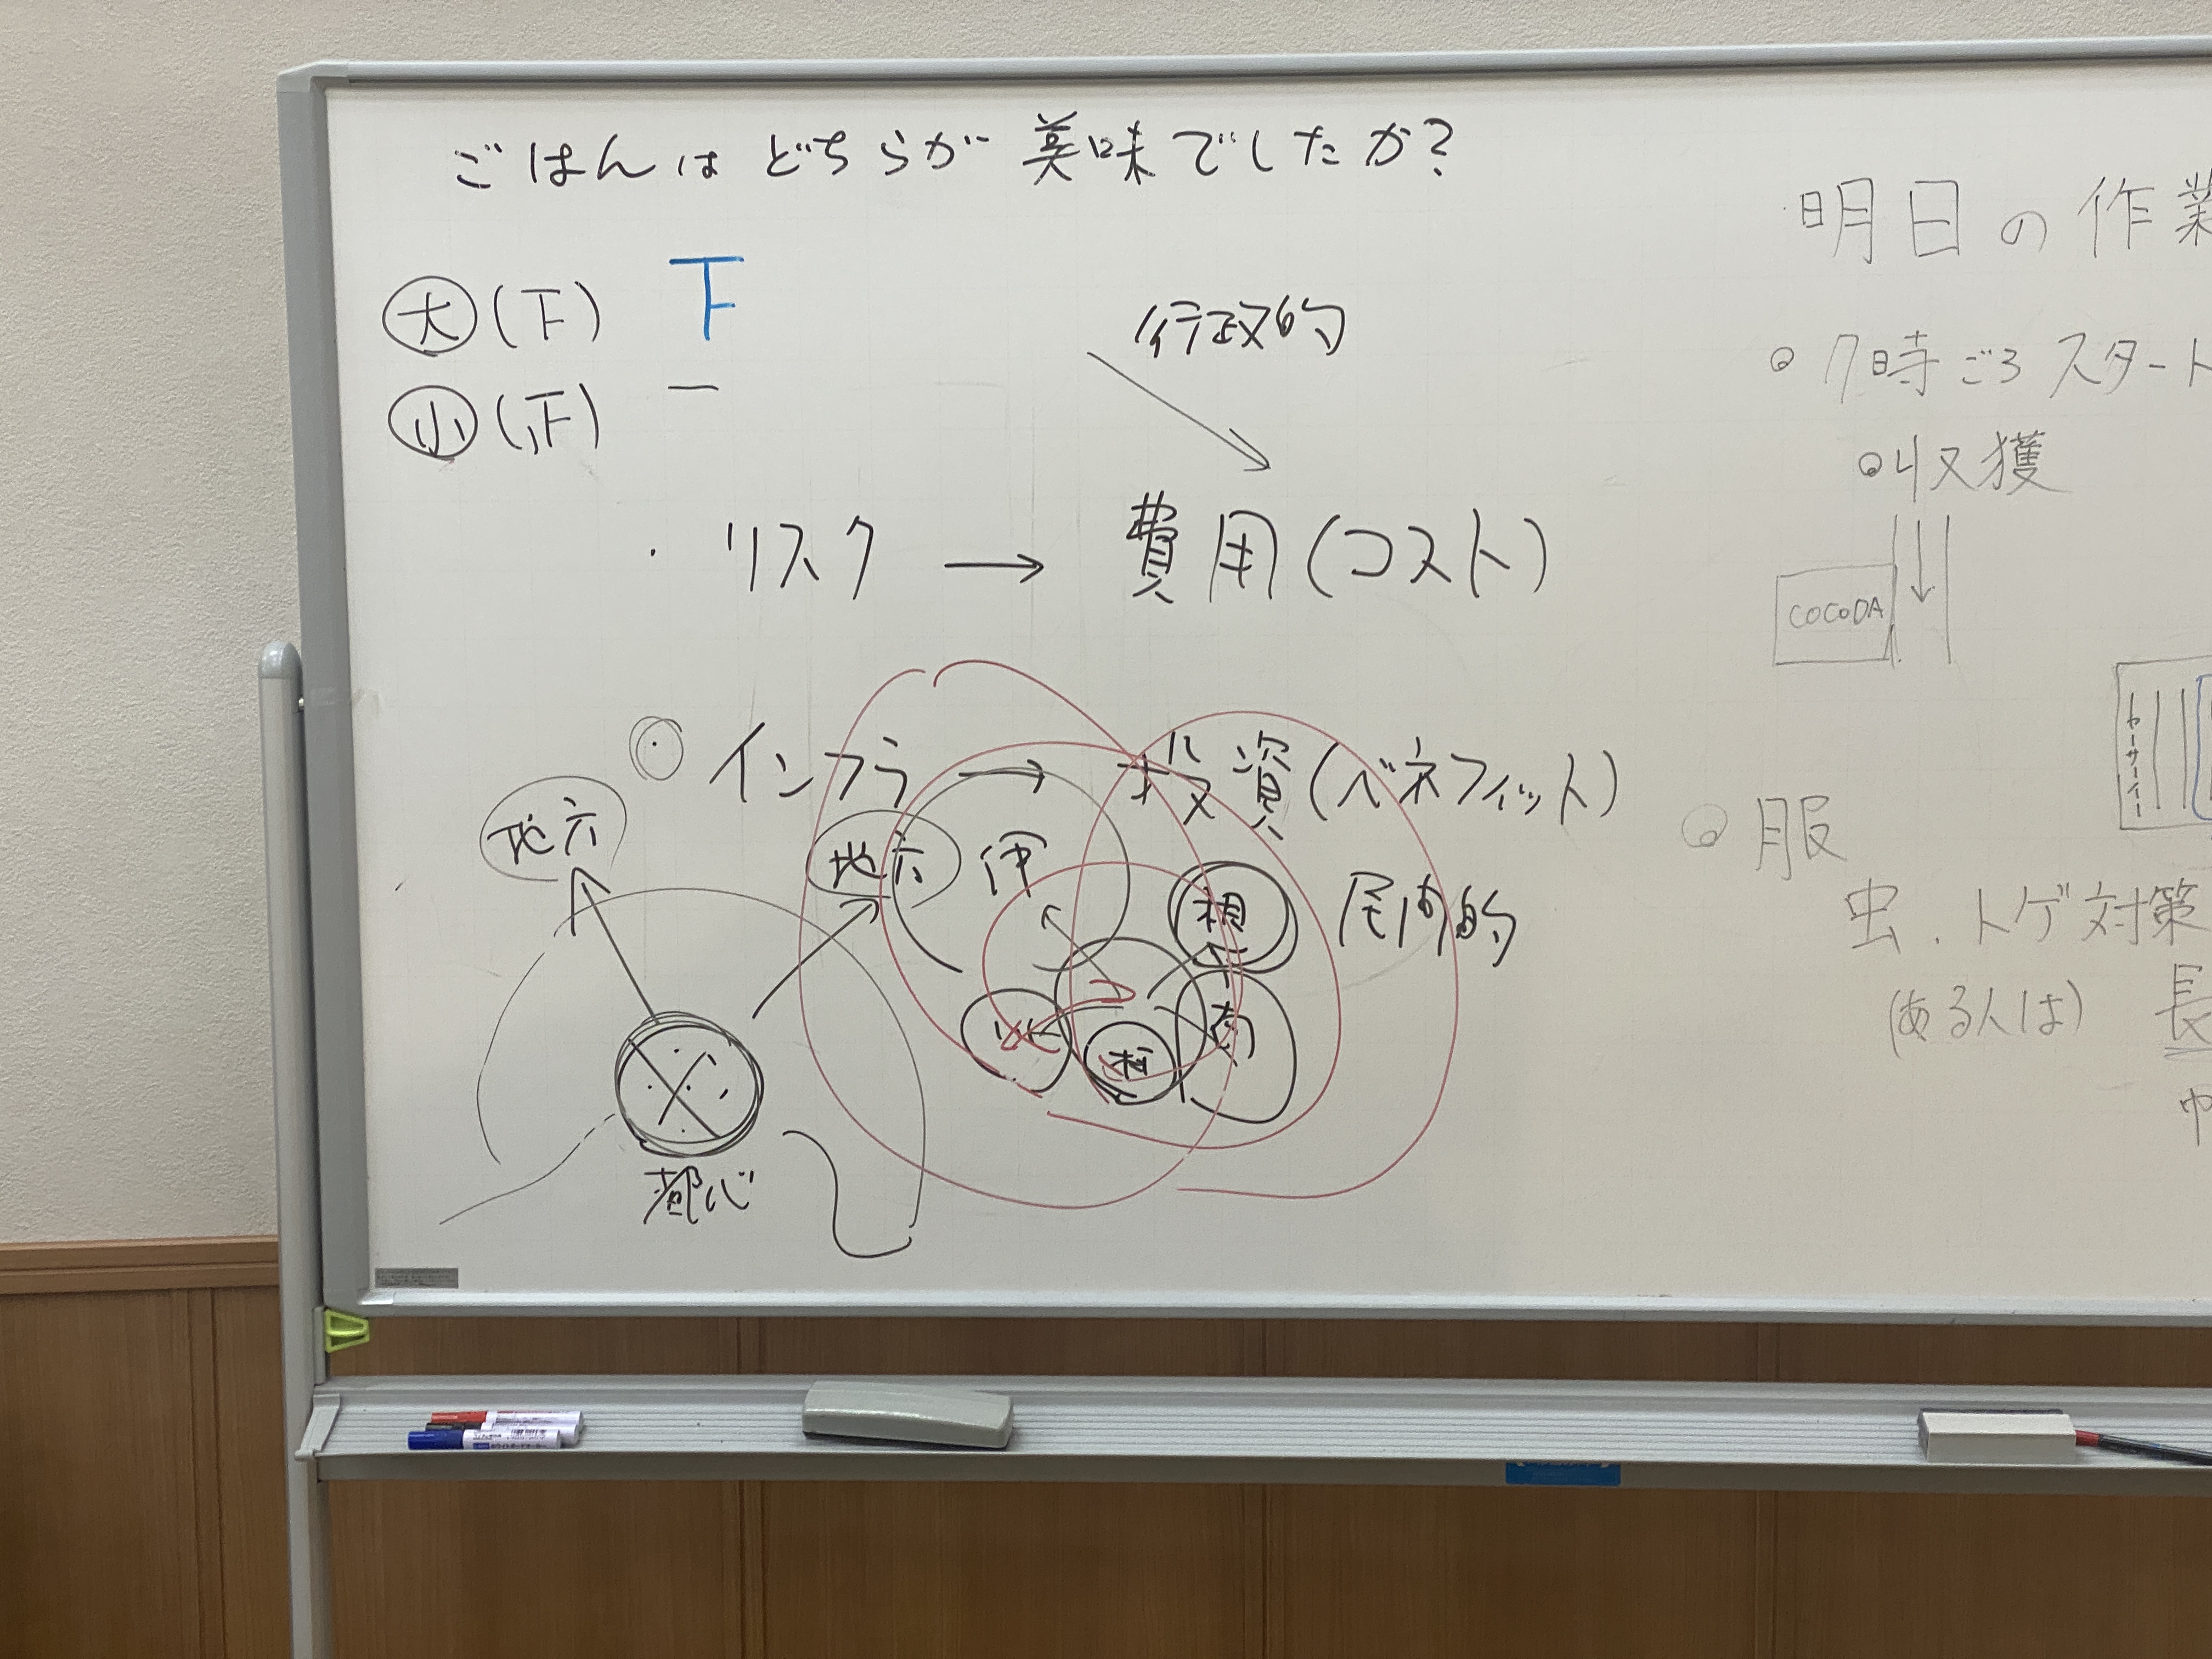 ごはんはどちらが美味でしたか?
大(下) 下
小(正) 一
行政的
・リスク → 費用(コスト)
インフラ → 投資(ベネフィット)
地方
地方
伊
相
尾内的
南
柯
都心
明日の作業
7時ごろスタート
収獲
COCODA
服
虫、トゲ対策
(ある人は) 長